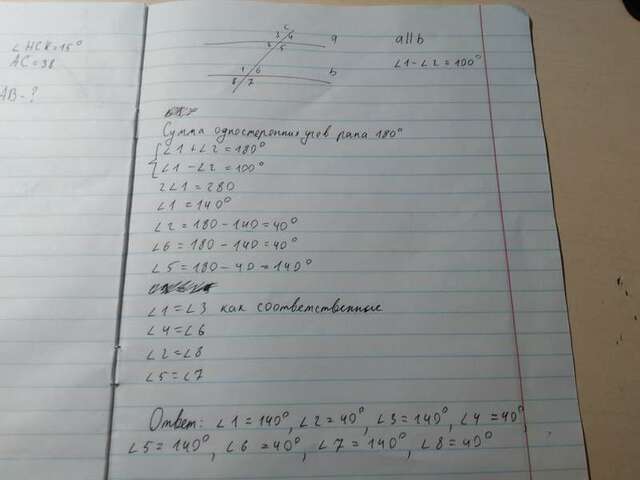 ∠HCK=15°
AC=38
AB-?
c
3 4
a
2 5
1 6
b
8 7
a||b
∠1-∠2=100°
Сумма односторонних углов рапа 180°
∠1+∠2=180°
∠1-∠2=100°
2∠1=280
∠1=140°
∠2=180-140=40°
∠6=180-140=40°
∠5=180-40=140°
∠1=∠3 как соответственные
∠4=∠6
∠2=∠8
∠5=∠7
Ответ: ∠1=140°, ∠2=40°, ∠3=140°, ∠4=40°,
∠5=140°, ∠6=40°, ∠7=140°, ∠8=40°